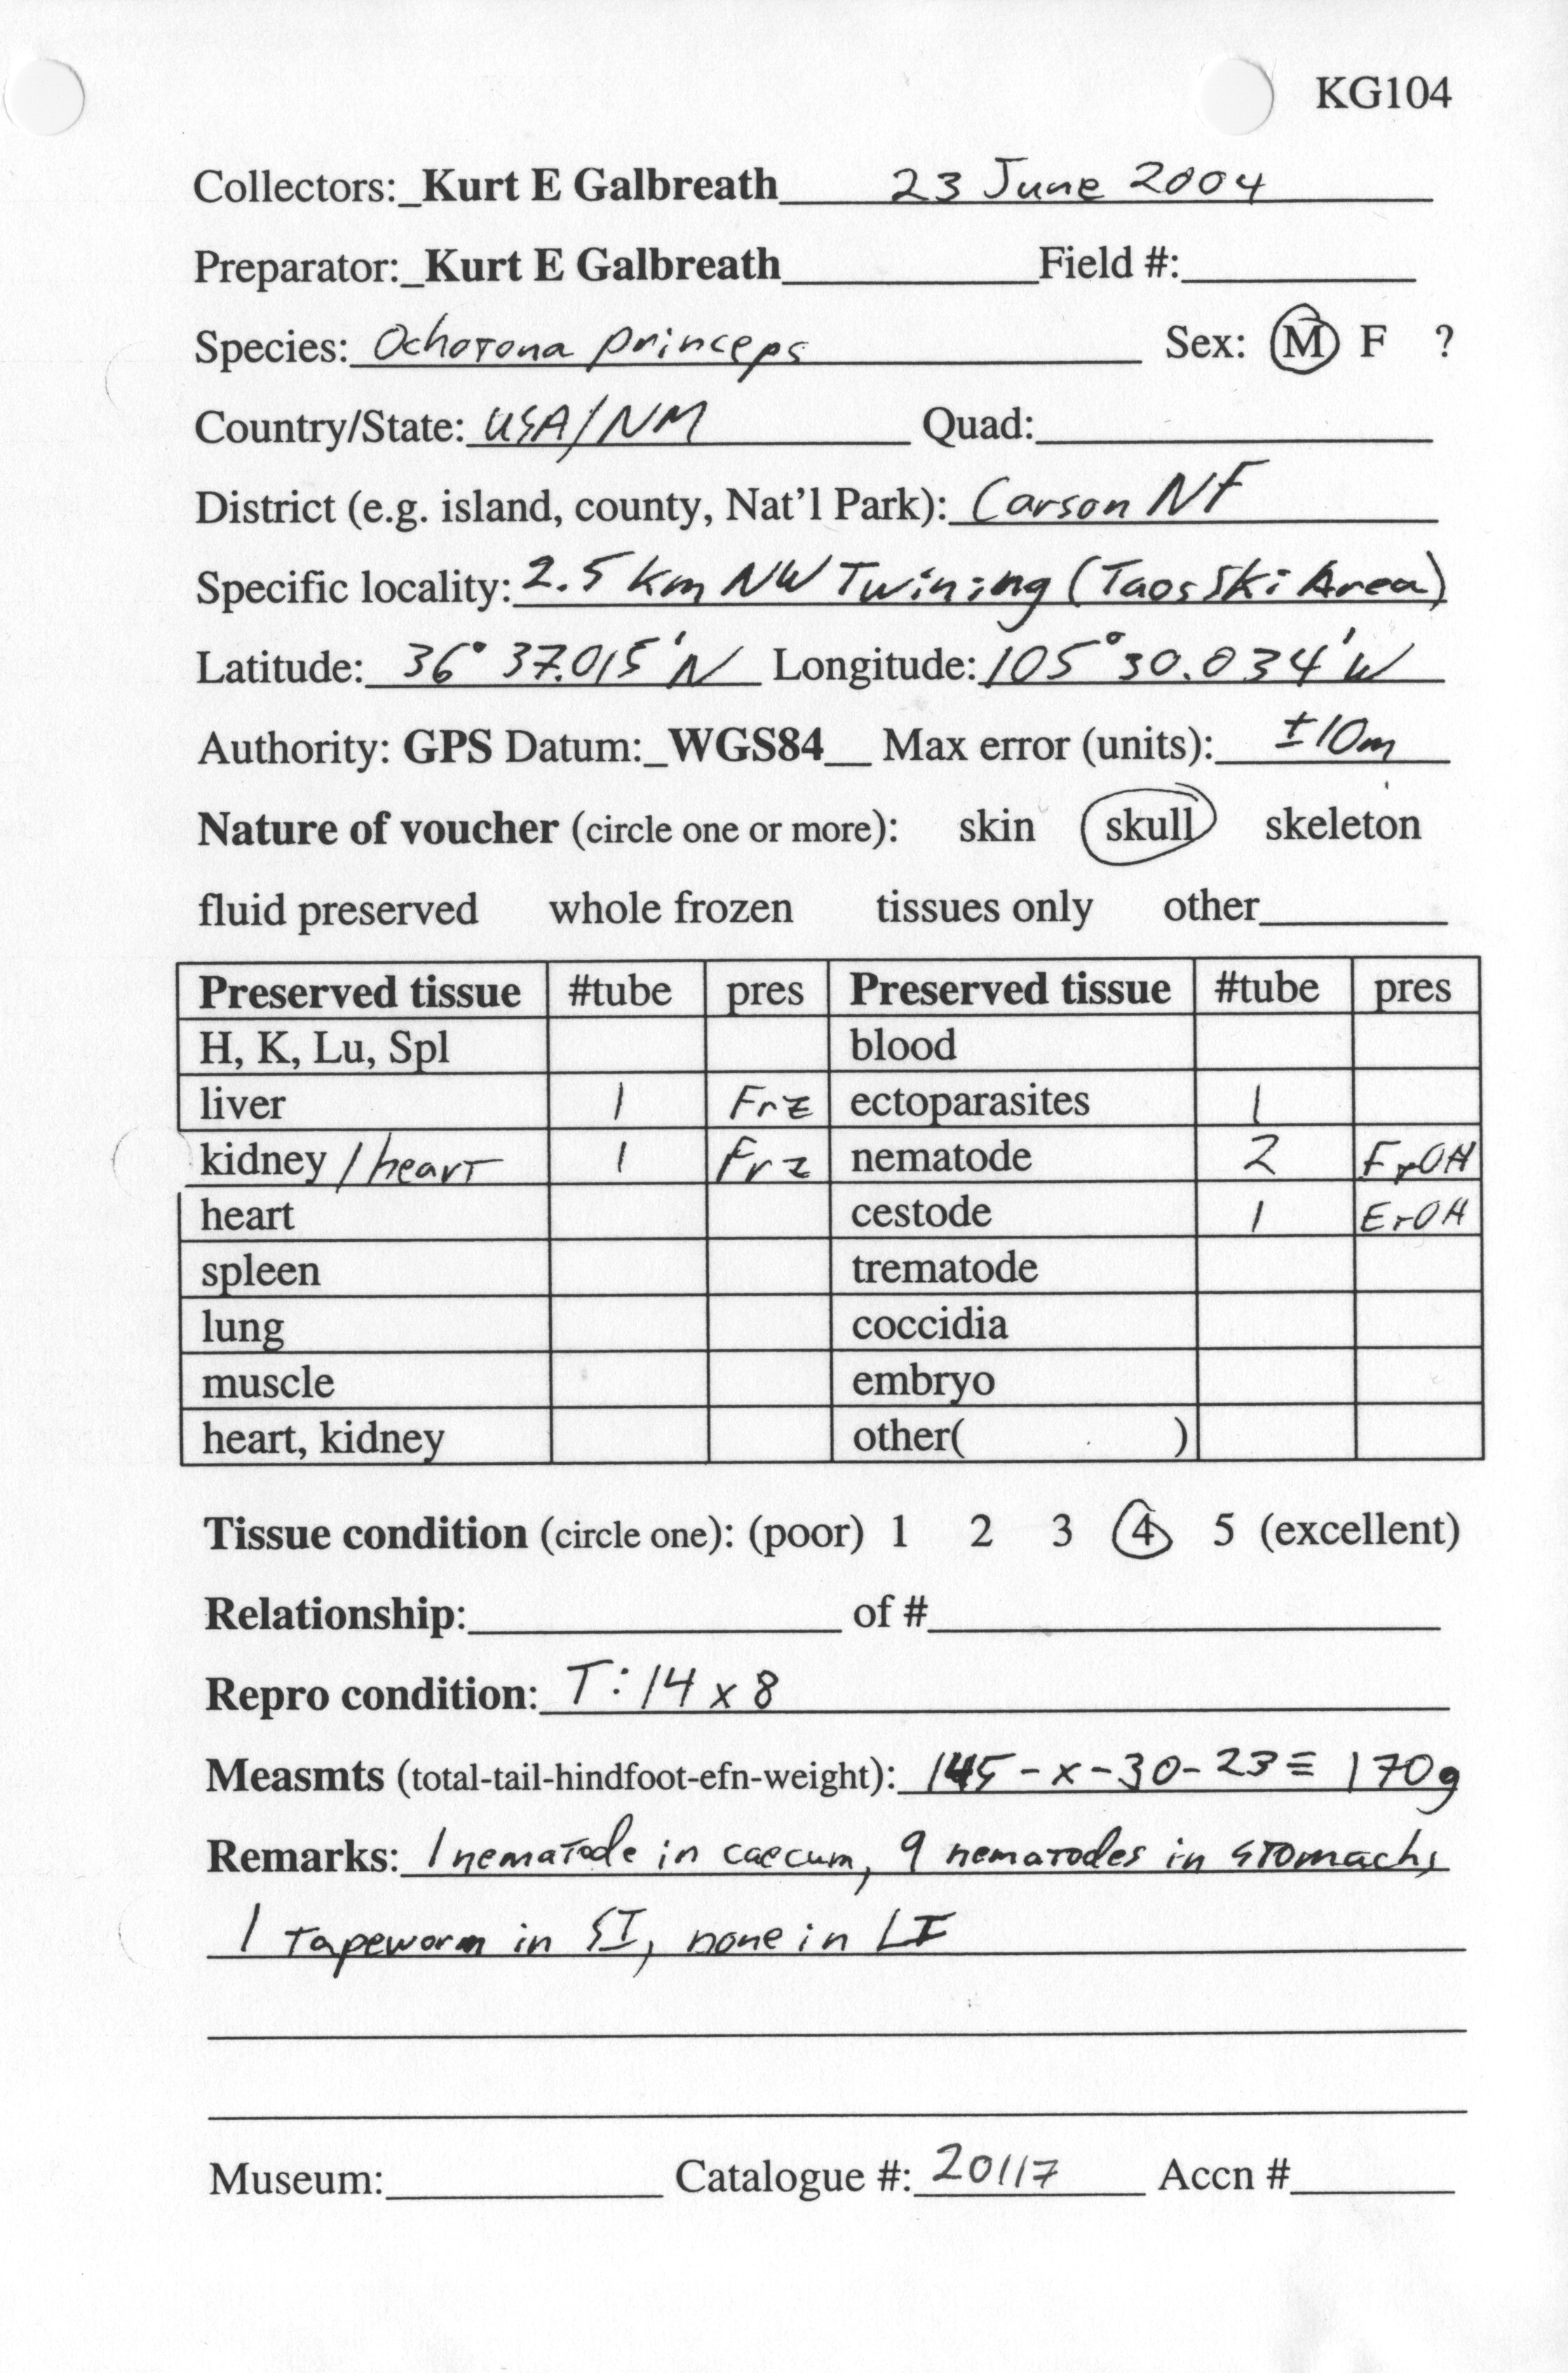 KG104
Collectors:_Kurt E Galbreath 23 June 2004
Preparator:_Kurt E Galbreath Field #:
Species: Ochotona princeps Sex: M F ?
Country/State: USA/NM Quad:
District (e.g. island, county, Nat'l Park): Carson NF
Specific locality: 2.5 km NW Twining (Taos Ski Area)
Latitude: 36° 37.015' N Longitude: 105° 30.034' W
Authority: GPS Datum:_WGS84__ Max error (units): ±10m
Nature of voucher (circle one or more): skin skull skeleton
fluid preserved whole frozen tissues only other
Preserved tissue #tube pres Preserved tissue #tube pres
H, K, Lu, Spl blood
liver 1 Frz ectoparasites 1
kidney / heart 1 Frz nematode 2 EtOH
heart cestode 1 EtOH
spleen trematode
lung coccidia
muscle embryo
heart, kidney other( )
Tissue condition (circle one): (poor) 1 2 3 4 5 (excellent)
Relationship: of #
Repro condition: T: 14 x 8
Measmts (total-tail-hindfoot-efn-weight): 145 - x - 30 - 23 ≡ 170g
Remarks: 1 nematode in caecum, 9 nematodes in stomach,
1 tapeworm in SI, none in LI
Museum: Catalogue #: 20117 Accn #